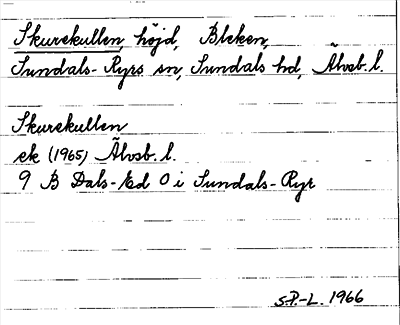 Skurekullen, höjd, Bleken,
Sundals-Ryrs sn, Sundals hd, Älvsb. l.
Skurekullen
ek (1965) Älvsb. l.
9 B Dals-Ed O i Sundals-Ryr
S.P.-L. 1966